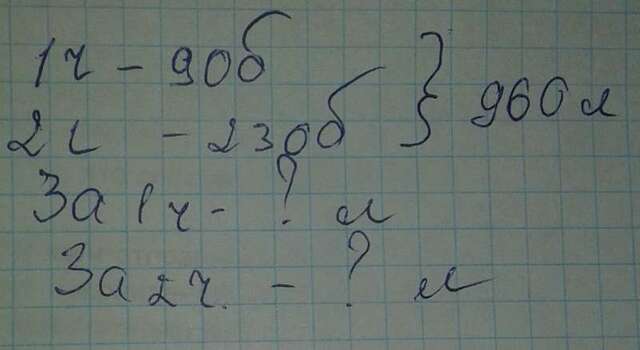 1ч - 90б } 960 л
2ч - 230б
За 1ч - ? л
За 2ч. - ? л